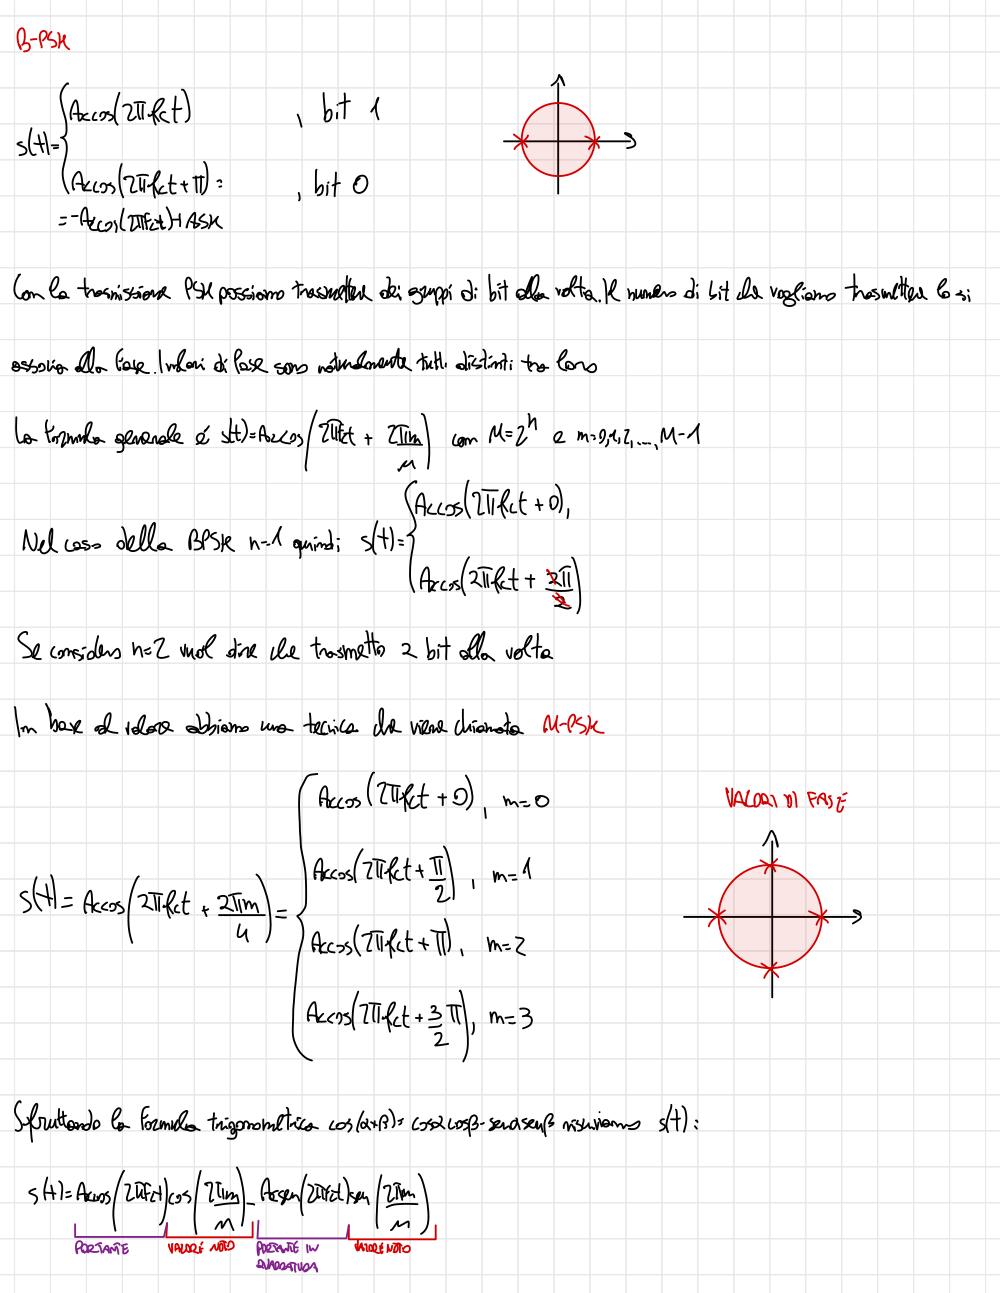 B-PSK
s(t)= { Accos(2πfct) , bit 1
Accos(2πfct+π) = , bit 0
=-Accos(2πfct)→ASK
Con la trasmissione PSK possiamo trasmettere dei gruppi di bit alla volta. Il numero di bit che vogliamo trasmettere lo si
associa alla fase. I valori di fase sono naturalmente tutti distinti tra loro
La formula generale é s(t)=Accos(2πfct + 2πm/M) con M=2^n e m=0,1,2,...,M-1
Nel caso della BPSK n=1 quindi s(t)= { Accos(2πfct+0),
Accos(2πfct + 2π/2)
Se considero n=2 vuol dire che trasmetto 2 bit alla volta
In base al valore abbiamo una tecnica che viene chiamata M-PSK
VALORI DI FASE
s(t)= Accos(2πfct + 2πm/4) = { Accos(2πfct+0), m=0
Accos(2πfct+π/2), m=1
Accos(2πfct+π), m=2
Accos(2πfct+3/2 π), m=3
Sfruttando la formula trigonometrica cos(α+β)= cosαcosβ-senαsenβ riscriviamo s(t):
s(t)=Accos(2πfct)cos(2πm/M)-Acsen(2πfct)sen(2πm/M)
PORTANTE VALORE NOTO PORTANTE IN QUADRATURA VALORE NOTO